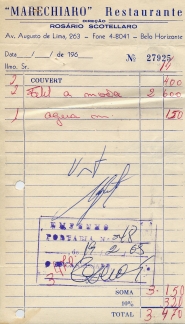 "MARECHIARO" Restaurante
DIREÇÃO
ROSÁRIO SCOTELLARO
Av. Augusto de Lima, 263 - Fone 4-8041 - Belo Horizonte
Data / / de 196 Nº 27925
Ilmo. Sr. 14
2 COUVERT 400
2 Filé a moda 2 600
1 agua m 150
19 2 65
SOMA 3.150
10% 320
TOTAL 3.470